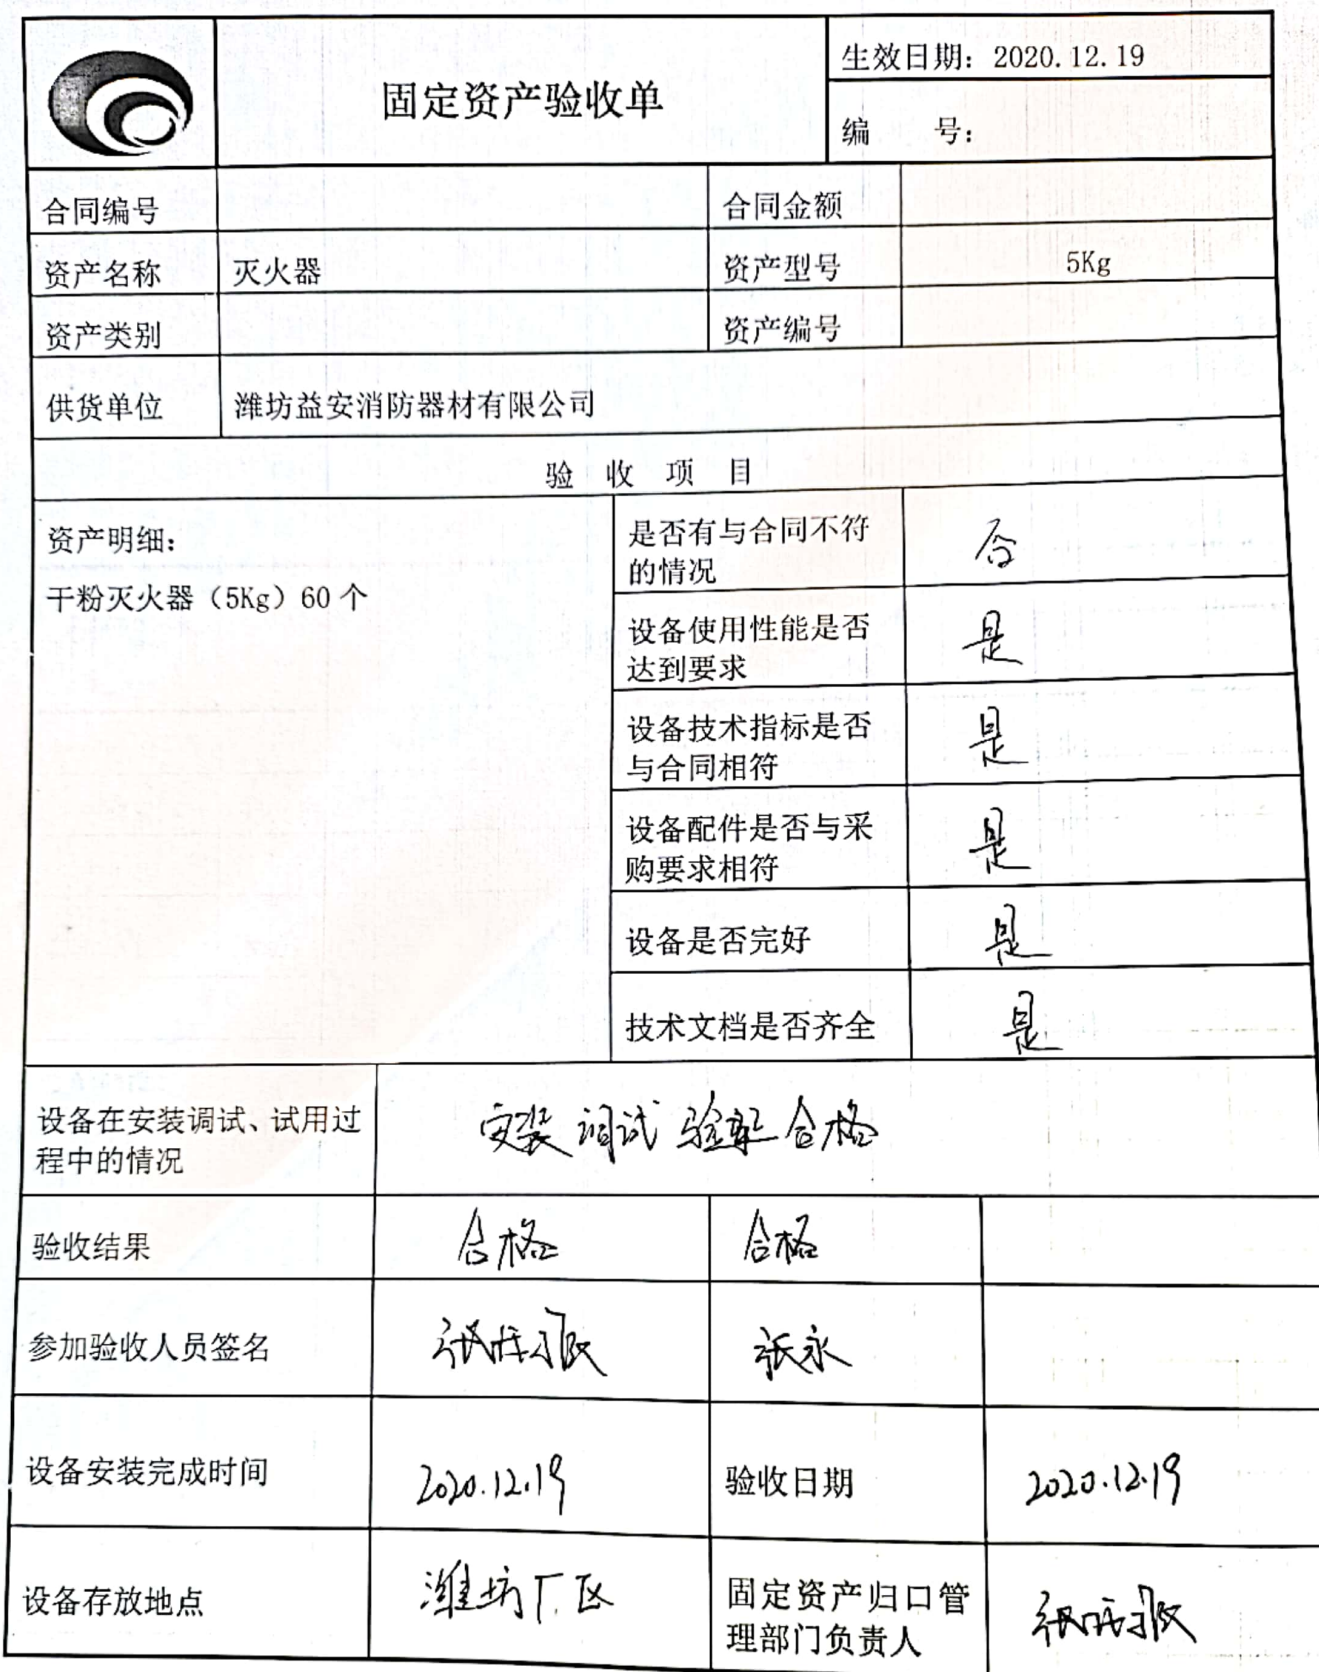 固定资产验收单
生效日期：2020.12.19
编　　号：
合同编号
合同金额
资产名称
灭火器
资产型号
5Kg
资产类别
资产编号
供货单位
潍坊益安消防器材有限公司
验 收 项 目
资产明细：
干粉灭火器（5Kg）60 个
是否有与合同不符
的情况
否
设备使用性能是否
达到要求
是
设备技术指标是否
与合同相符
是
设备配件是否与采
购要求相符
是
设备是否完好
是
技术文档是否齐全
是
设备在安装调试、试用过
程中的情况
安装调试验收合格
验收结果
合格
合格
参加验收人员签名
张永
设备安装完成时间
2020.12.19
验收日期
2020.12.19
设备存放地点
潍坊厂区
固定资产归口管
理部门负责人